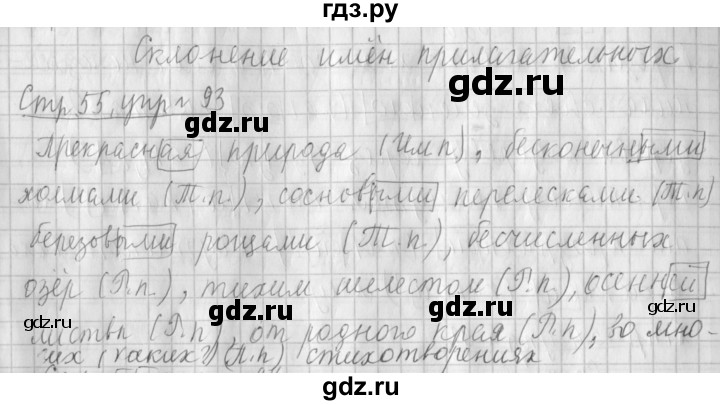 гдз.ру
Склонение имён прилагательных
Стр 55, упр. 93
gdz.ru
gdz.ru
Прекрасная природа (Им п), бесконечными
холмами (Т.п.), сосновыми перелесками (Т.п)
gdz.ru
gdz.ru
березовыми рощами (Т.п), бесчисленных
озёр (Р.п.), тихим шелестом (Р.п), осенней
gdz.ru
gdz.ru
gdz.ru
листвы (Р.п), от родного края (Р.п), во мно-
гих (каких?) (П.п) стихотворениях
gdz.ru